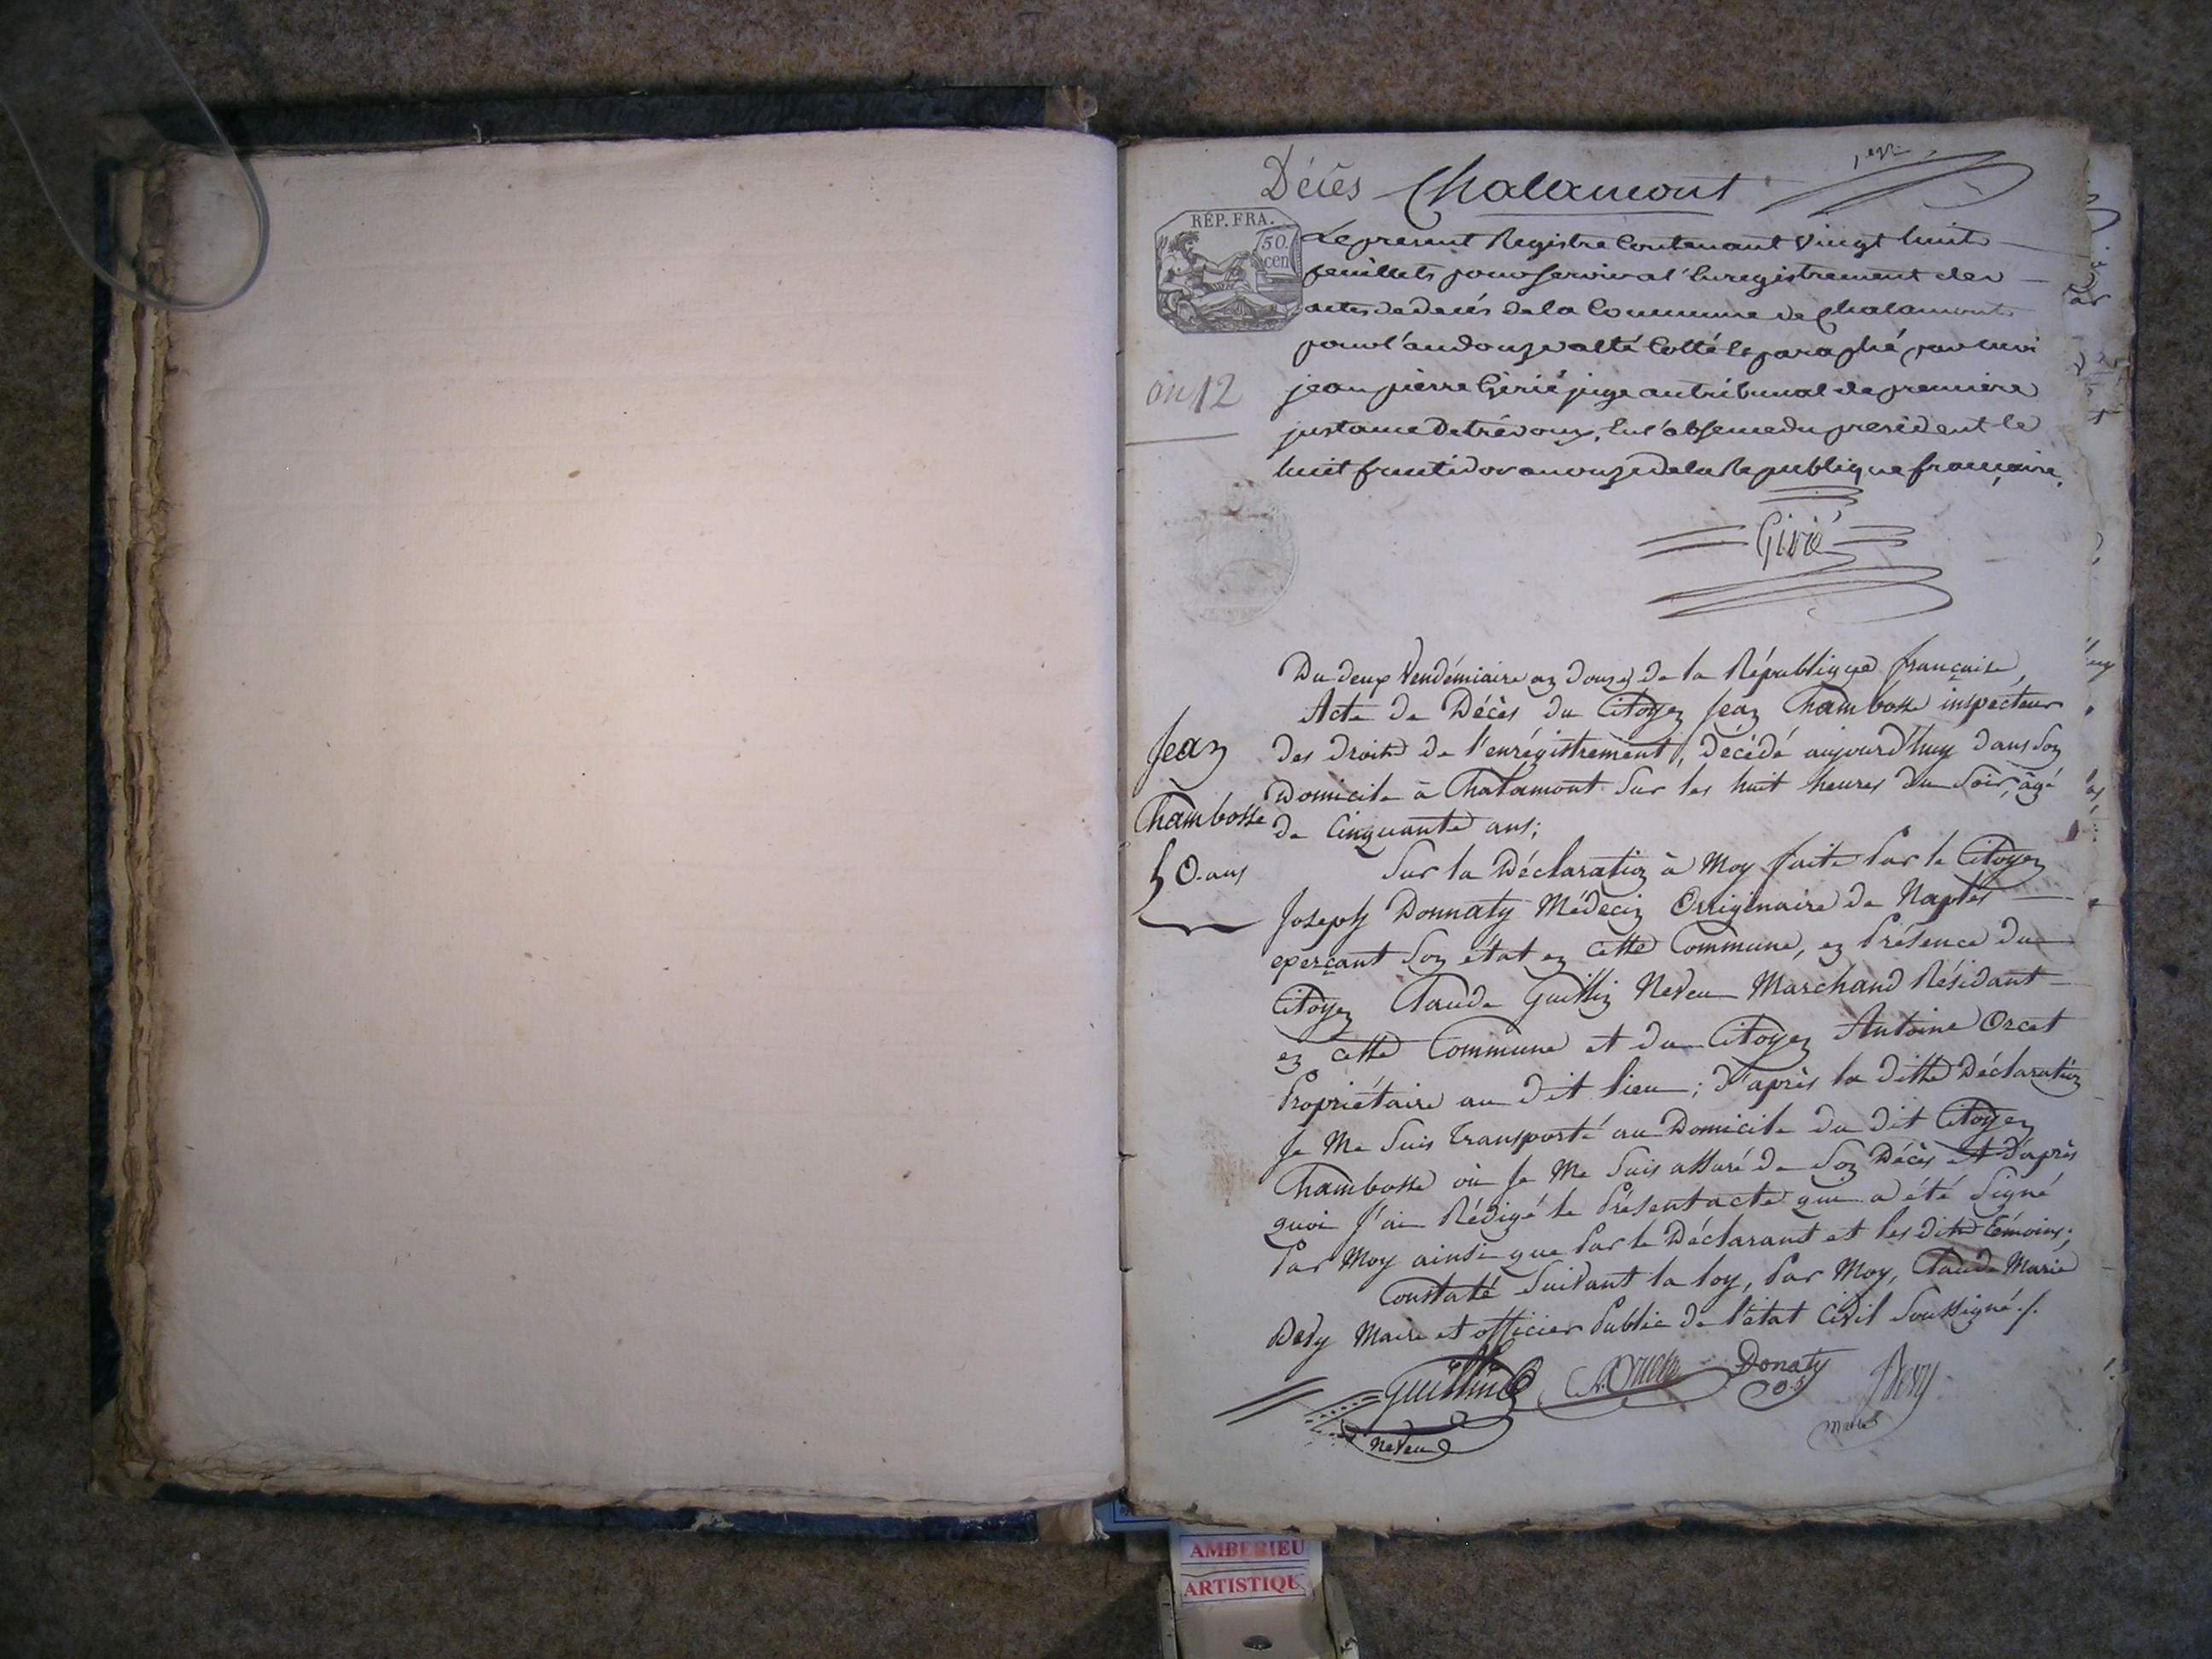 Décès Chalamont 1er
RÉP. FRA.
50.
cen
Le present Registre Contenant Vingt huit
feuillets pour servir a l'Enregistrement des
actes de decés de la Commune de Chalamont
pour l'an douze a été Cotté & paraphé par moi
an 12
jean pierre Girié juge au tribunal de premiere
justance De trévoux, En l'absence du president le
huit fructidor an onze de la Republique française.
Girié
Du deux Vendémiaire an douze de la République française,
Acte de Décès du Citoyen Jean Chambosse inspecteur
des droits de l'enrégistrement, décédé aujourd'huy dans Son
Domicile à Chalamont Sur les huit heures du Soir, âgé
de Cinquante ans;
Jean
Chambosse
50 ans
Sur la Déclaration à Moy faite Par le Citoyen
Joseph Donnaty Médecin Originaire de Naples
exerçant Son état en cette Commune, en Présence du
Citoyen Claude Guillin Neveu Marchand Résidant
en cette Commune et du Citoyen Antoine Orcet
Propriétaire au dit lieu; d'après la ditte Déclaration
Je Me Suis Transporté au Domicile du dit Citoyen
Chambosse où Je Me Suis assuré de Son Décès et d'après
quoi J'ai Rédigé le Présent acte qui a été Signé
Par Moy ainsi que Par le Déclarant et les dits Témoins;
Constaté Suivant la loy, Par Moy, Claude Marie
Devy Maire et officier Public de l'état Civil Soussigné ./.
Guillin
neveu
Donaty
Devy
maire
AMBERIEU
ARTISTIQU